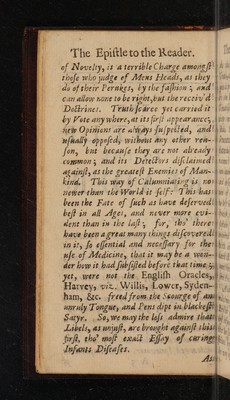 The Epistle to the Reader.
of Novelty, is a terrible Charge amongst
those who judge of Mens Heads, as they
do of their Perukes, by the fashion; and
can allow none to be right, but the receiv'd
Doctrines. Truth scarce yet carried it
by Vote any where, at its first appearance;
new Opinions are always suspected, and
usually opposed, without any other rea-
son, but because they are not already
common; and its Detectors disclaimed
against, as the greatest Enemies of Man-
kind. This way of Calumniating is no
newer than the World it self: This has
been the Fate of such as have deserved
best in all Ages, and never more evi-
dent than in the last; for, tho' there
have been a great many things discovered
in it, so essential and necessary for the
use of Medicine, that it may be a won-
der how it had subsisted before that time;
yet, were not the English Oracles,
Harvey, viz. Willis, Lower, Syden-
ham, &c. freed from the Scourge of an
unruly Tongue, and Pens dipt in blackest
Satyr. So, we may the less admire that
Libels, as unjust, are brought against this
first, tho' most exact Essay of curing
Infants Diseases.